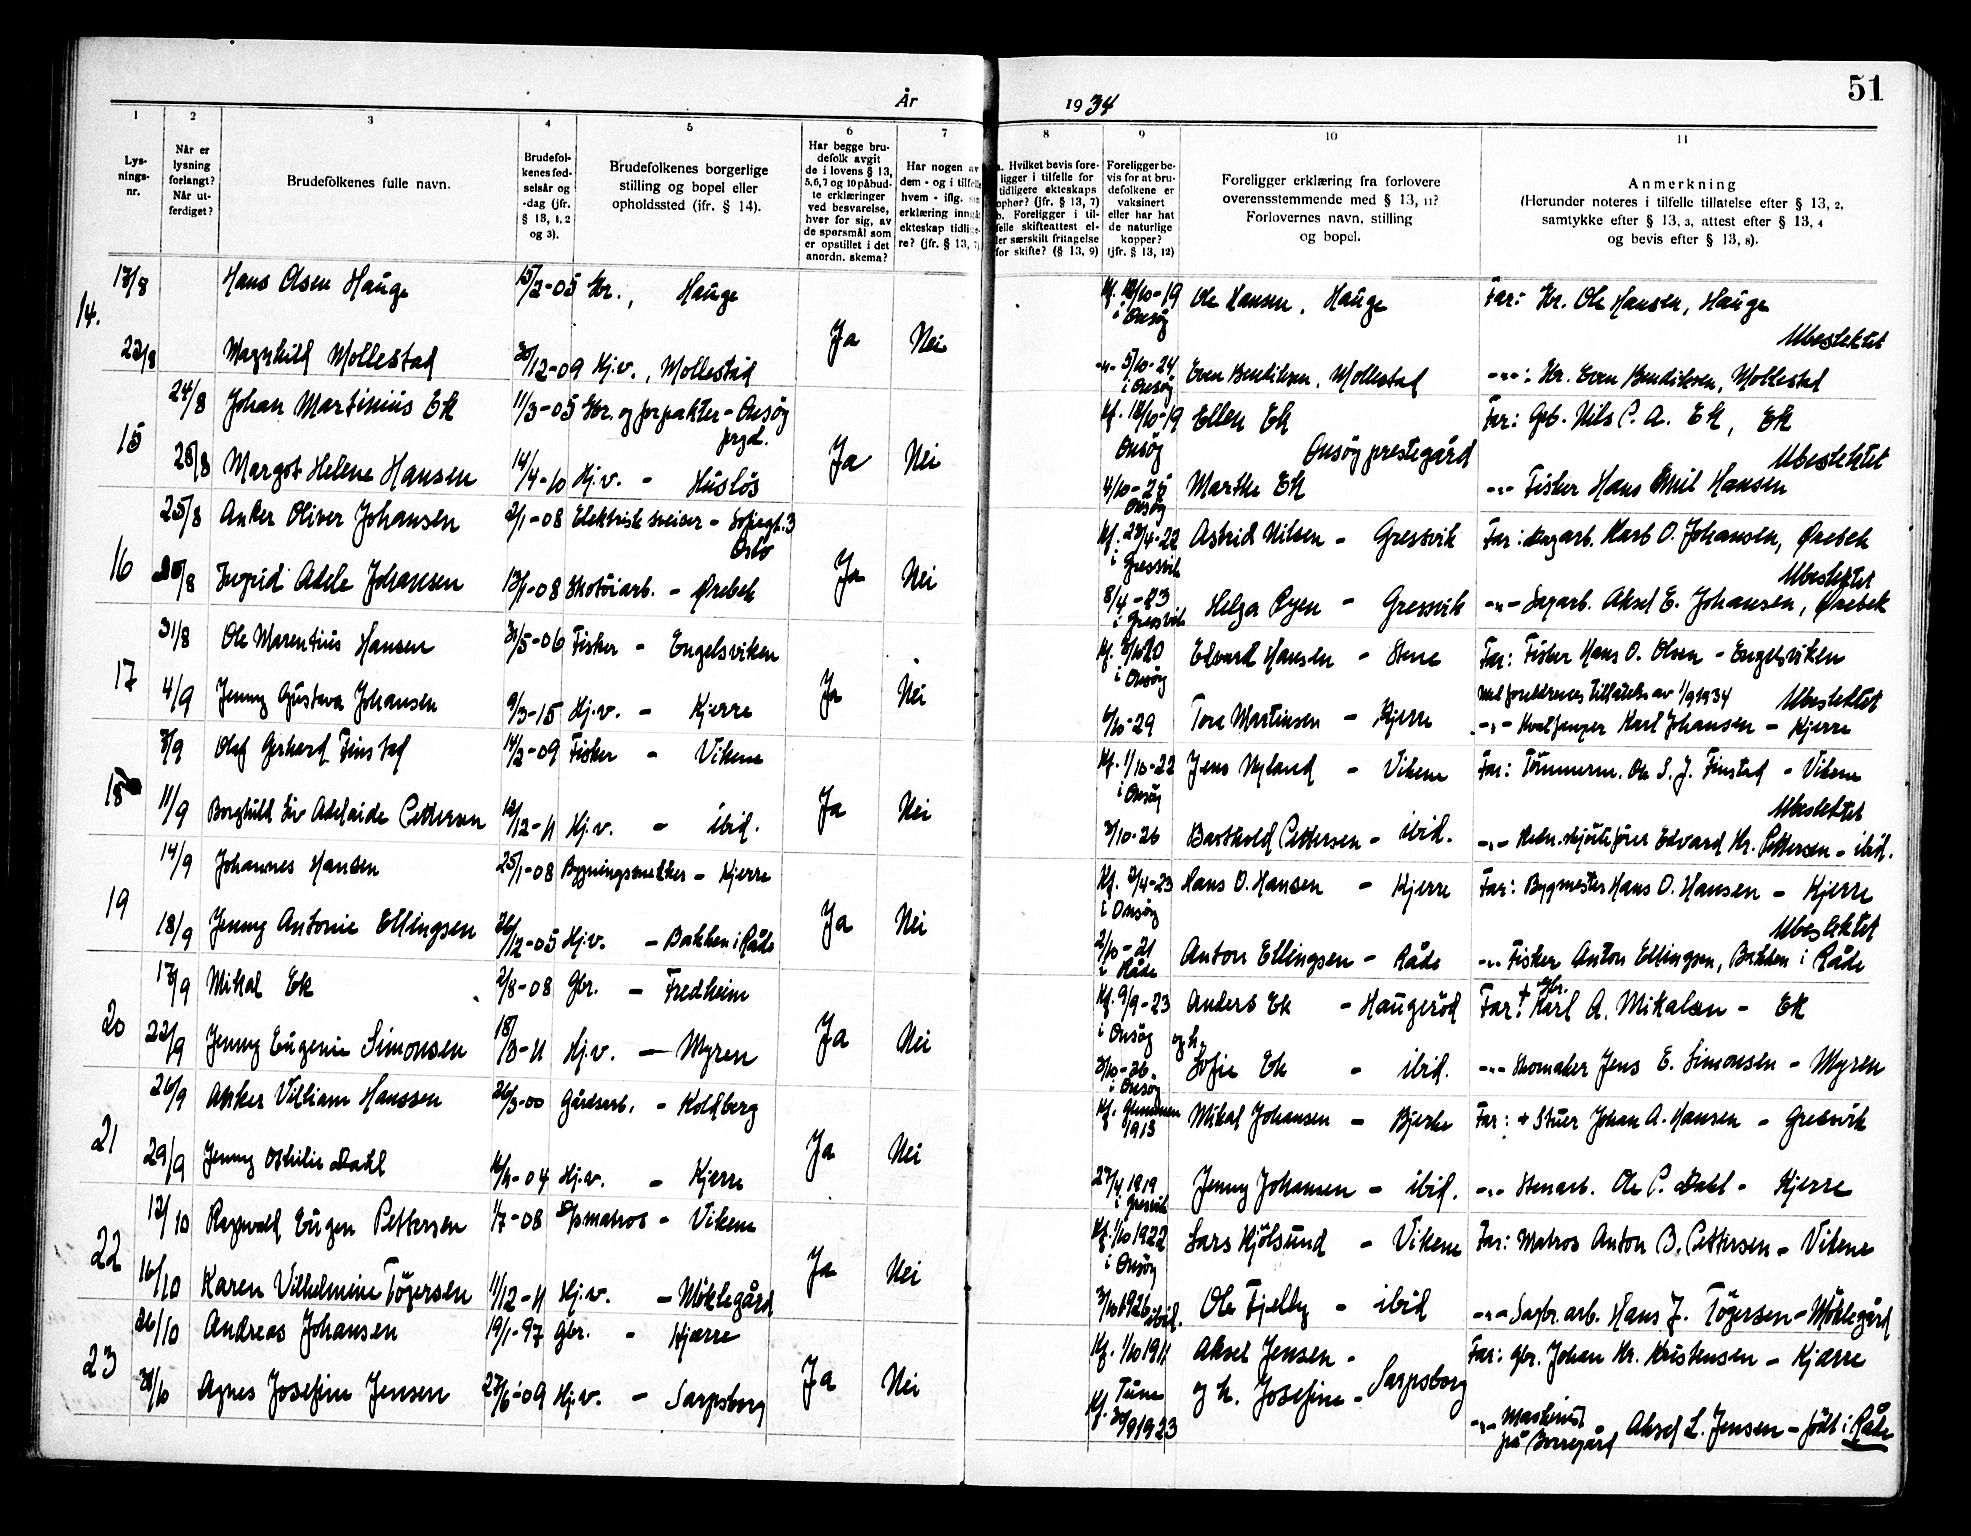 51
År 1934
1 2 3 4 5 6 7 8 9 10 11
Lys-
nings-
nr.
Når er
lysning
forlangt?
Når ut-
ferdiget?
Brudefolkenes fulle navn.
Brudefol-
kenes fød-
selsår og
-dag (jfr.
§ 13, 1, 2
og 3).
Brudefolkenes borgerlige
stilling og bopel eller
opholdssted (ifr. § 14).
Har begge bru-
defolk avgit
de i lovens § 13,
5,6,7 og 10 påbud-
te erklæringer
ved besvarelse,
hver for sig, av
de spørsmål som
er opstillet i det
anordn. skema?
Har nogen av
dem - og i tilfelle
hvem - iflg. sin
erklæring inngått
ekteskap tidlige-
re? (jfr. § 13, 7)
a. Hvilket bevis fore-
ligger i tilfelle for
tidligere ekteskaps
ophør? (jfr. § 13, 7)
b. Foreligger i til-
felle skifteattest el-
ler særskilt fritagelse
for skifte? (§ 13, 9)
Foreligger be-
vis for at bru-
defolkene er
vaksinert
eller har hat
de naturlige
kopper?
(jfr. § 13, 12)
Foreligger erklæring fra forlovere
overensstemmende med § 13, 11?
Forlovernes navn, stilling
og bopel.
Anmerkning
(Herunder noteres i tilfelle tillatelse efter § 13, 2,
samtykke efter § 13, 3, attest efter § 13, 4
og bevis efter § 13, 8).
14. Hans Olsen Hauge 15/2-05 Gbr., Hauge Kf. i Onsøy Ole Hansen, Hauge Far: Gbr. Ole Hansen, Hauge
Ja Nei Ubeslektet
Magnhild Mollestad 30/12-09 Hj.v., Mollestad -"- 5/10-24 i Onsøy Even Bendiksen, Mollestad -"-: Gbr. Even Bendiksen, Mollestad
15 24/8 Johan Martinius Ek 11/3-05 Gbr. og forpakter - Onsøy prgd. Kf. Onsøy Ellen Ek Far: Gbr. Nils P. A. Ek, Ek
Ja Nei Onsøy prestegård Ubeslektet
28/8 Margot Helene Hansen 14/4-10 Hj.v. - Husløs Onsøy Marthe Ek -"- Fisker Hans Emil Hansen
16 25/8 Anker Oliver Johansen 2/1-08 Elektrisk sveiser - Sofiegt. 3 Oslo Kf. 23/4-22 i Gressvik Astrid Nilsen - Gressvik Far: Karl O. Johansen, Ørebek
Ja Nei Ubeslektet
Ingrid Adele Johansen Skotøiarb. - Ørebek 8/4-23 i Gressvik Helga Øyen - Gressvik -"- Sagarb. Aksel E. Johansen, Ørebek
17 31/8 Ole Marentius Hansen 31/5-06 Fisker - Engelsviken Kf. i Onsøy Edvard Hansen - Stene Far: Fisker Hans O. Olsen - Engelsviken
Ja Nei Med foreldrenes tillatelse av 1/9 1934 Ubeslektet
4/9 Jenny Gustava Johansen 9/3-15 Hj.v. - Kjerre Tora Martinsen - Kjerre -"- Hvalfanger Karl Johansen - Kjerre
18 Olaf Gerhard Finstad 14/2-09 Fisker - Vikene Kf. 1/10-22 i Onsøy Jens Nyland - Vikene Far: Tømmerm. Ole S. J. Finstad - Vikene
Ja Nei Ubeslektet
11/9 Borghild Liv Adelaide Pettersen Hj.v. - ibid. 3/10-26 Barthold Pettersen - ibid. -"- Redn.skjøitefører Edvard Kr. Pettersen - ibid.
19 14/9 Johannes Hansen 25/1-08 Bygningssnekker - Kjerre Kf. i Onsøy Hans O. Hansen - Kjerre Far: Bygmester Hans O. Hansen - Kjerre
Ja Nei Ubeslektet
18/9 Jenny Antonie Ellingsen 26/12-05 Hj.v. - Bakken i Råde 2/10-21 i Råde Anton Ellingsen - Råde -"- Fisker Anton Ellingsen, Bakken i Råde
20 17/9 Mikal Ek 2/8-08 Gbr. - Fredheim Kf. 9/9-23 i Onsøy Anders Ek - Haugerød Far: † Gbr. Karl A. Mikalsen - Ek
Ja Nei og h.
22/9 Jenny Eugenie Simonsen 18/3-11 Hj.v. - Myren 3/10-26 i Onsøy Sofie Ek - ibid. -"- Skomaker Jens E. Simonsen - Myren
21 26/9 Anker Villiam Hanssen 26/3-00 Gårdsarb. - Koldberg Kf. Glemmen 1913 Mikal Johansen - Bjerke Far: + Stuer Johan A. Hansen - Gresvik
Ja Nei
29/9 Jenny Othilie Dahl Hj.v. - Kjerre 27/4 1919 i Gresvik Jenny Johansen - ibid. -"- Stenarb. Ole P. Dahl - Kjerre
22 12/10 Ragnvald Eugen Pettersen 1/7-08 matros - Vikene Kf. 1/10 1922 i Onsøy Lars Kjølsund - Vikene Far: Matros Anton B. Pettersen - Vikene
Ja Nei
16/10 Karen Vilhelmine Tøgersen 11/12-11 Hj.v. - Møklegård 3/10 1926 ibid. Ole Fjelby - ibid -"- Sagbr.arb. Hans J. Tøgersen - Møklegård
23 26/10 Andreas Johansen 19/1-97 Gbr. - Kjærre Kf. 1/10 1911 Aksel Jensen - Far: Gbr. Johan Kr. Kristensen - Kjærre
Ja Nei Sarpsborg
30/10 Agnes Josefine Jensen 27/6-09 Hj.v. - Sarpsborg Kf. Tune 30/9 1923 og h. Josefine - -"- Maskinist på Borregård - Aksel L. Jensen - født i Råde